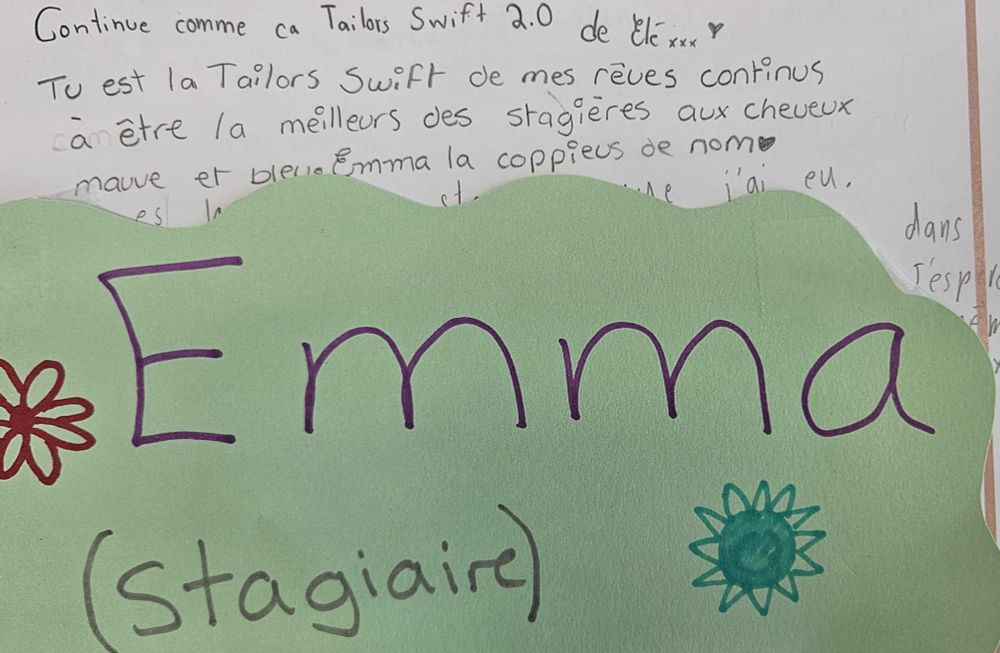 Continue comme ca Tailors Swift 2.0 de Elé xxx ♥
Tu est la Tailors Swift de mes rêves continus
à être la meilleurs des stagières aux cheveux
mauve et bleu. Emma la coppieus de nom♥
j'ai eu.
dans
Emma
(stagiaire)